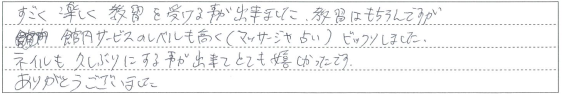 すごく楽しく教習を受ける事が出来ました。教習はもちろんですが
館内サービスのレベルも高く(マッサージや占い)ビックリしました。
ネイルも久しぶりにする事が出来てとても嬉しかったです。
ありがとうございました